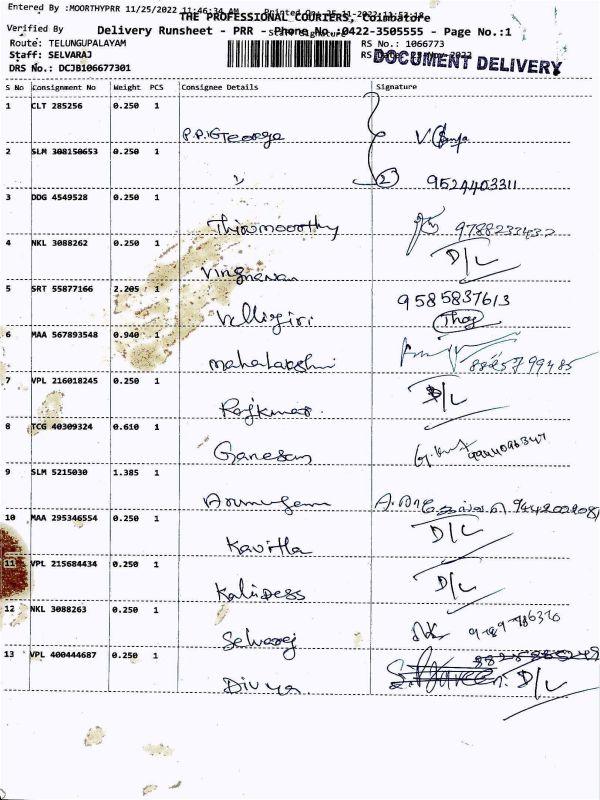 Entered By :MOORTHYPRR 11/25/2022 11:46:34 AM
THE PROFESSIONAL COURIERS, Coimbatore
Verified By
Delivery Runsheet - PRR - Phone No :0422-3505555 - Page No.:1
Route: TELUNGUPALAYAM
RS No.: 1066773
Staff: SELVARAJ
DOCUMENT DELIVERY
DRS No.: DCJB106677301
S No Consignment No Weight PCS Consignee Details Signature
1 CLT 285256 0.250 1
P.P.George
2 SLM 308150653 0.250 1
" 2 9524403311
3 DDG 4549528 0.250 1
Thirumoorthy 9788233432
4 NKL 3088262 0.250 1
D/L
5 SRT 55877166 2.205 1
Velligiri 9585837613
6 MAA 567893548 0.940 1
Mahalakshmi 8825799485
7 VPL 216018245 0.250 1
Rajkumar. D/L
8 TCG 40309324 0.610 1
Ganesan
9 SLM 5215030 1.385 1
Arumugam
10 MAA 295346554 0.250 1
Kavitha D/L
11 VPL 215684434 0.250 1
D/L
12 NKL 3088263 0.250 1
Selvaraj
13 VPL 400444687 0.250 1
Divya D/L